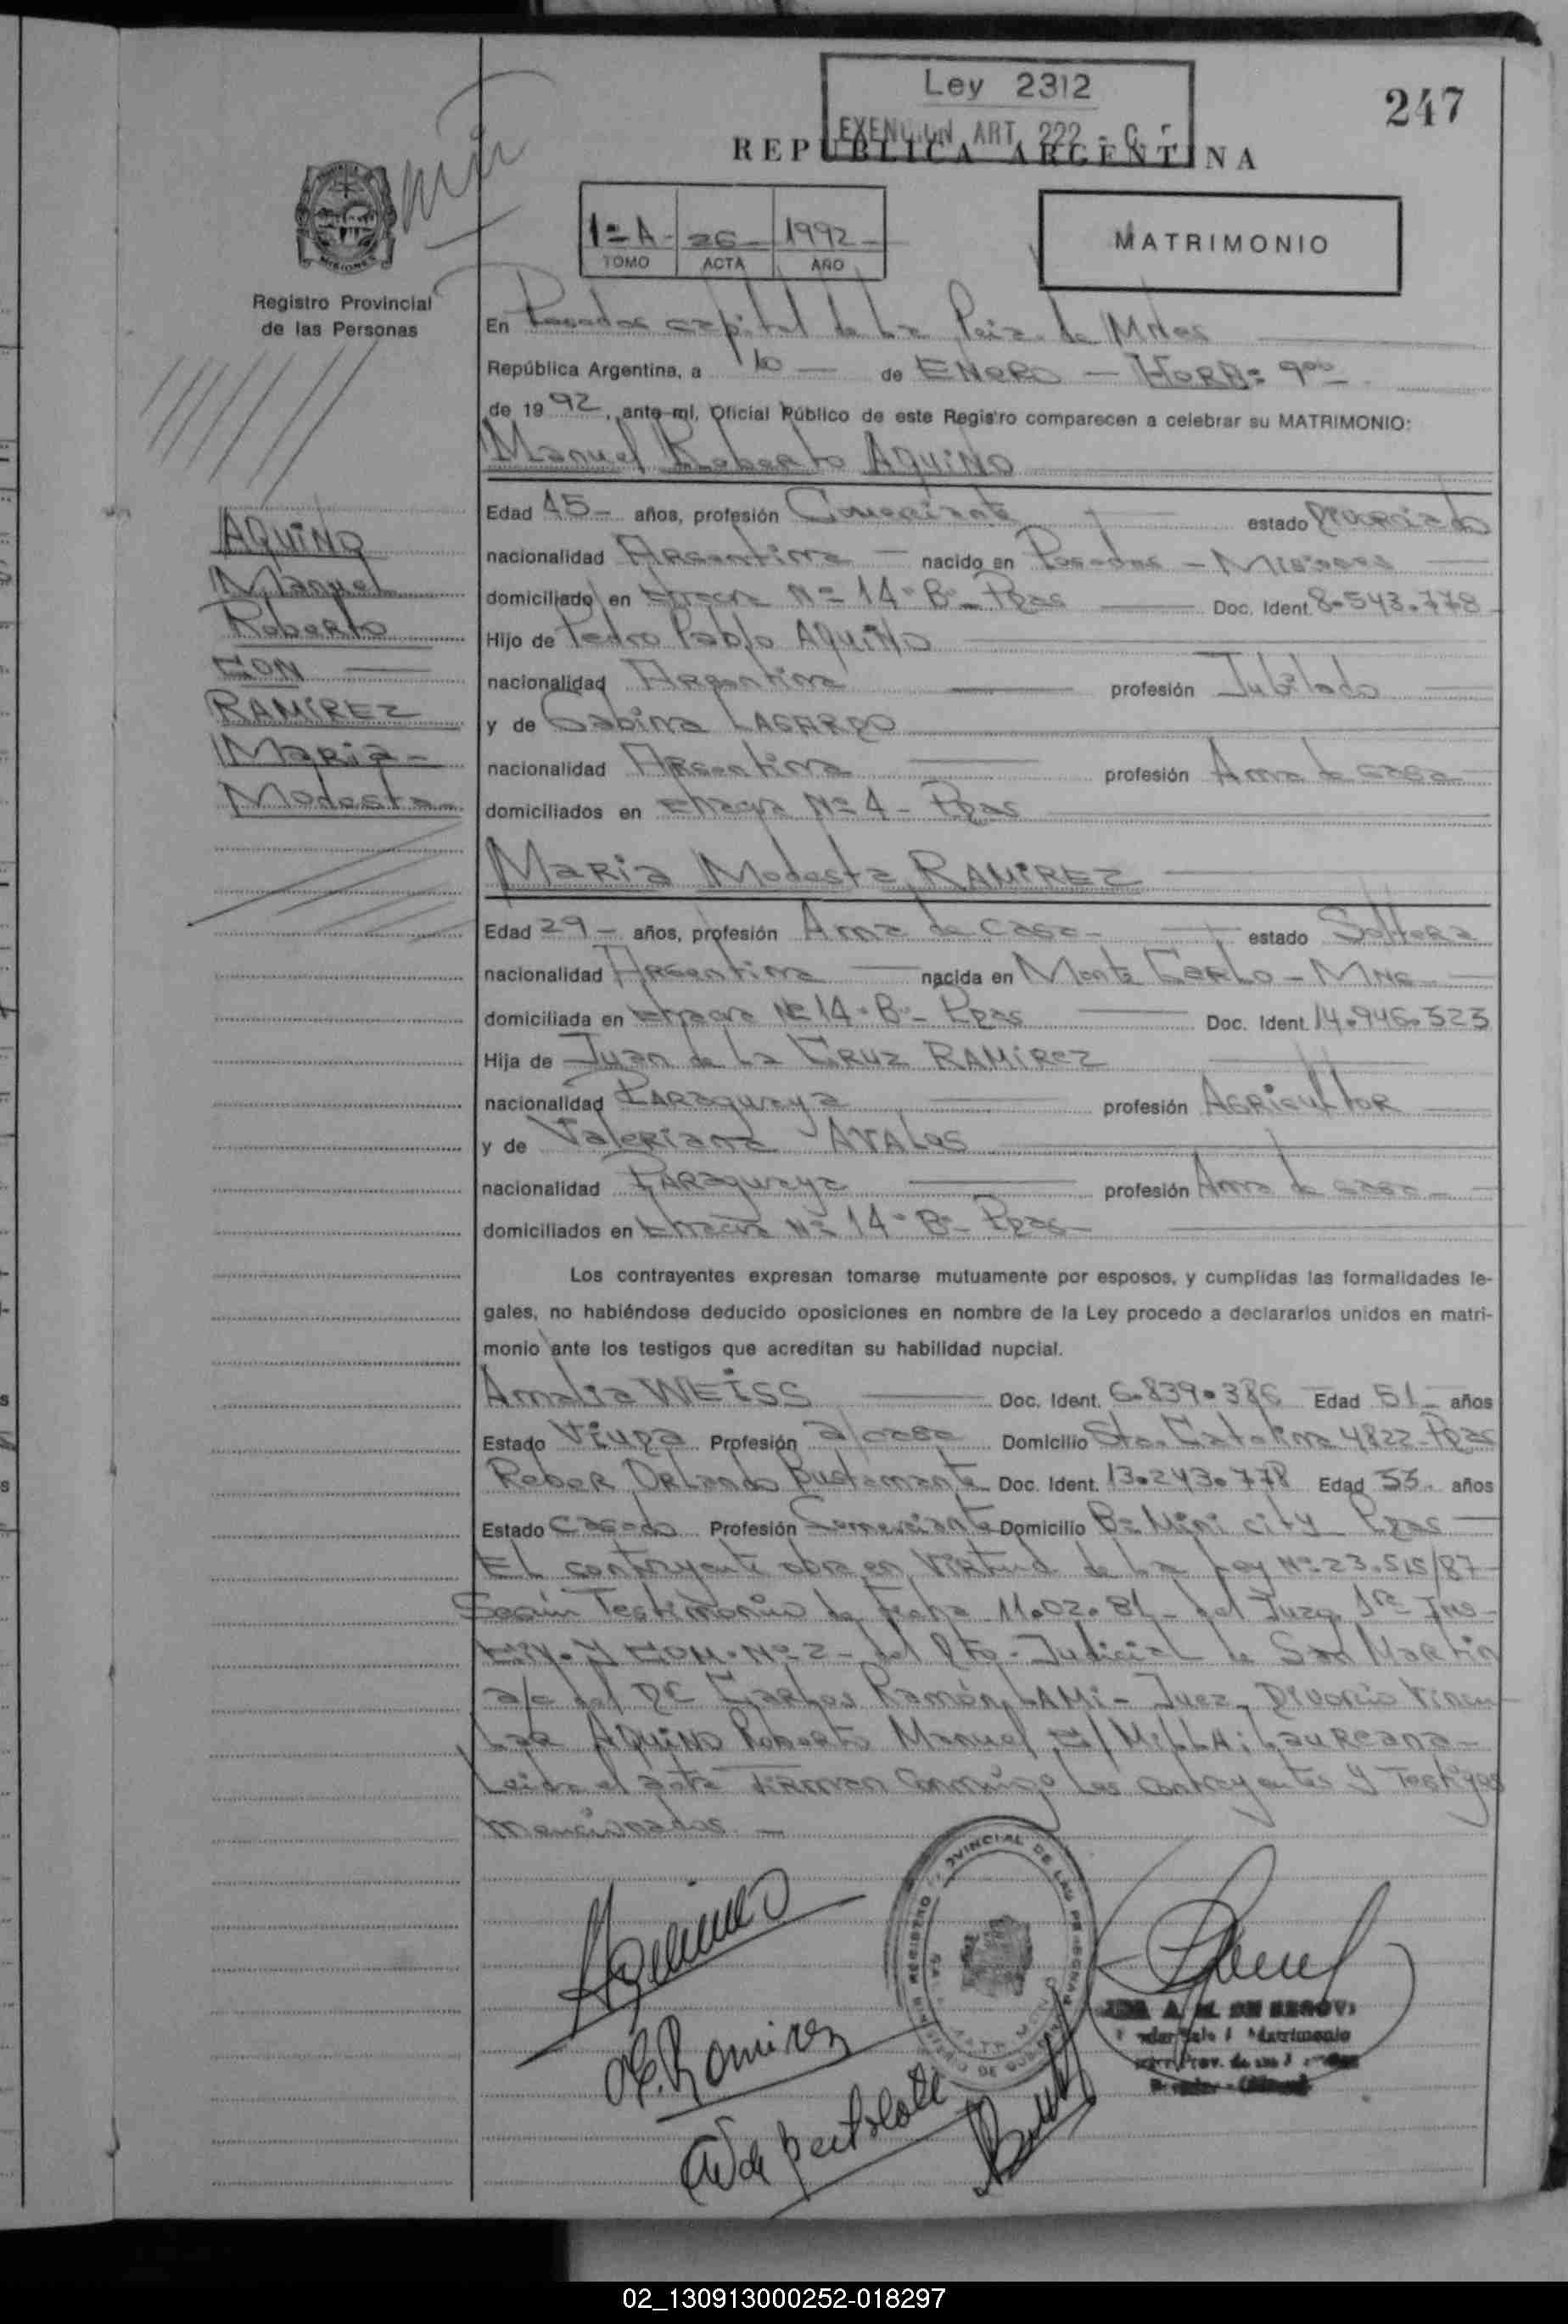 247
Ley 2312
EXENCION ART. 222 - C.F.
REPUBLICA ARGENTINA
1º A - 26 - 1992 -
TOMO ACTA AÑO
MATRIMONIO
MISIONES
Registro Provincial
de las Personas
En Posadas capital de la Pcia. de Mnes
República Argentina, a 10 — de ENERO — HORA: 9ºº
de 1992, ante mí, Oficial Público de este Registro comparecen a celebrar su MATRIMONIO:
Manuel Roberto AQUINO
AQUINO
Manuel
Roberto
CON
RAMIREZ
Maria -
Modesta
Edad 45 - años, profesión Comerciante estado Divorciado
nacionalidad Argentina — nacido en Posadas - Misiones
domiciliado en Chacra Nº 14 - Bº - Pdas Doc. Ident. 8.543.778
Hijo de Pedro Pablo AQUINO
nacionalidad Argentina profesión Jubilado
y de Sabina
nacionalidad Argentina profesión Ama de casa
domiciliados en Chacra Nº 4 - Pdas
Maria Modesta RAMIREZ
Edad 29 - años, profesión Ama de casa - estado Soltera
nacionalidad Argentina — nacida en Monte Carlo - Mnes
domiciliada en Chacra Nº 14 - Bº - Pdas Doc. Ident. 14.946.323
Hija de Juan de La Cruz RAMIREZ
nacionalidad Paraguaya profesión Agricultor
y de Valeriana AVALOS
nacionalidad Paraguaya profesión Ama de casa -
domiciliados en Chacra Nº 14 - Bº - Pdas -
Los contrayentes expresan tomarse mutuamente por esposos, y cumplidas las formalidades le-
gales, no habiéndose deducido oposiciones en nombre de la Ley procedo a declararlos unidos en matri-
monio ante los testigos que acreditan su habilidad nupcial.
Amalia WEISS Doc. Ident. 6.839.386 Edad 51 - años
Estado Viuda Profesión a/casa Domicilio Sta. Catalina 4822 - Pdas
Reber Orlando Bustamante Doc. Ident. 13.243.778 Edad 33. años
Estado Casado Profesión Comerciante Domicilio Bº Mini city - Pdas
El contrayente obra en Virtud de la Ley Nº 23.515/87
Según Testimonio de Fecha 11.02.81 - del Juzg. 1ra Ins -
Civ. y COM. Nº 2 - del Dto. Judicial de San Martin
a/c del Dr Carlos Ramón LAMI - Juez - Divorcio Vincu
lar AQUINO Roberto Manuel c/ MILLA; Laureana -
Leida el acta Firman Conmigo los contrayentes y Testigos
mencionados -
M. Ramirez
AW de Bertolotti
REGISTRO PROVINCIAL DE LAS PERSONAS
02_130913000252-018297